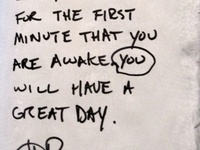 FOR THE FIRST
MINUTE THAT YOU
ARE AWAKE, YOU
WILL HAVE A
GREAT DAY.